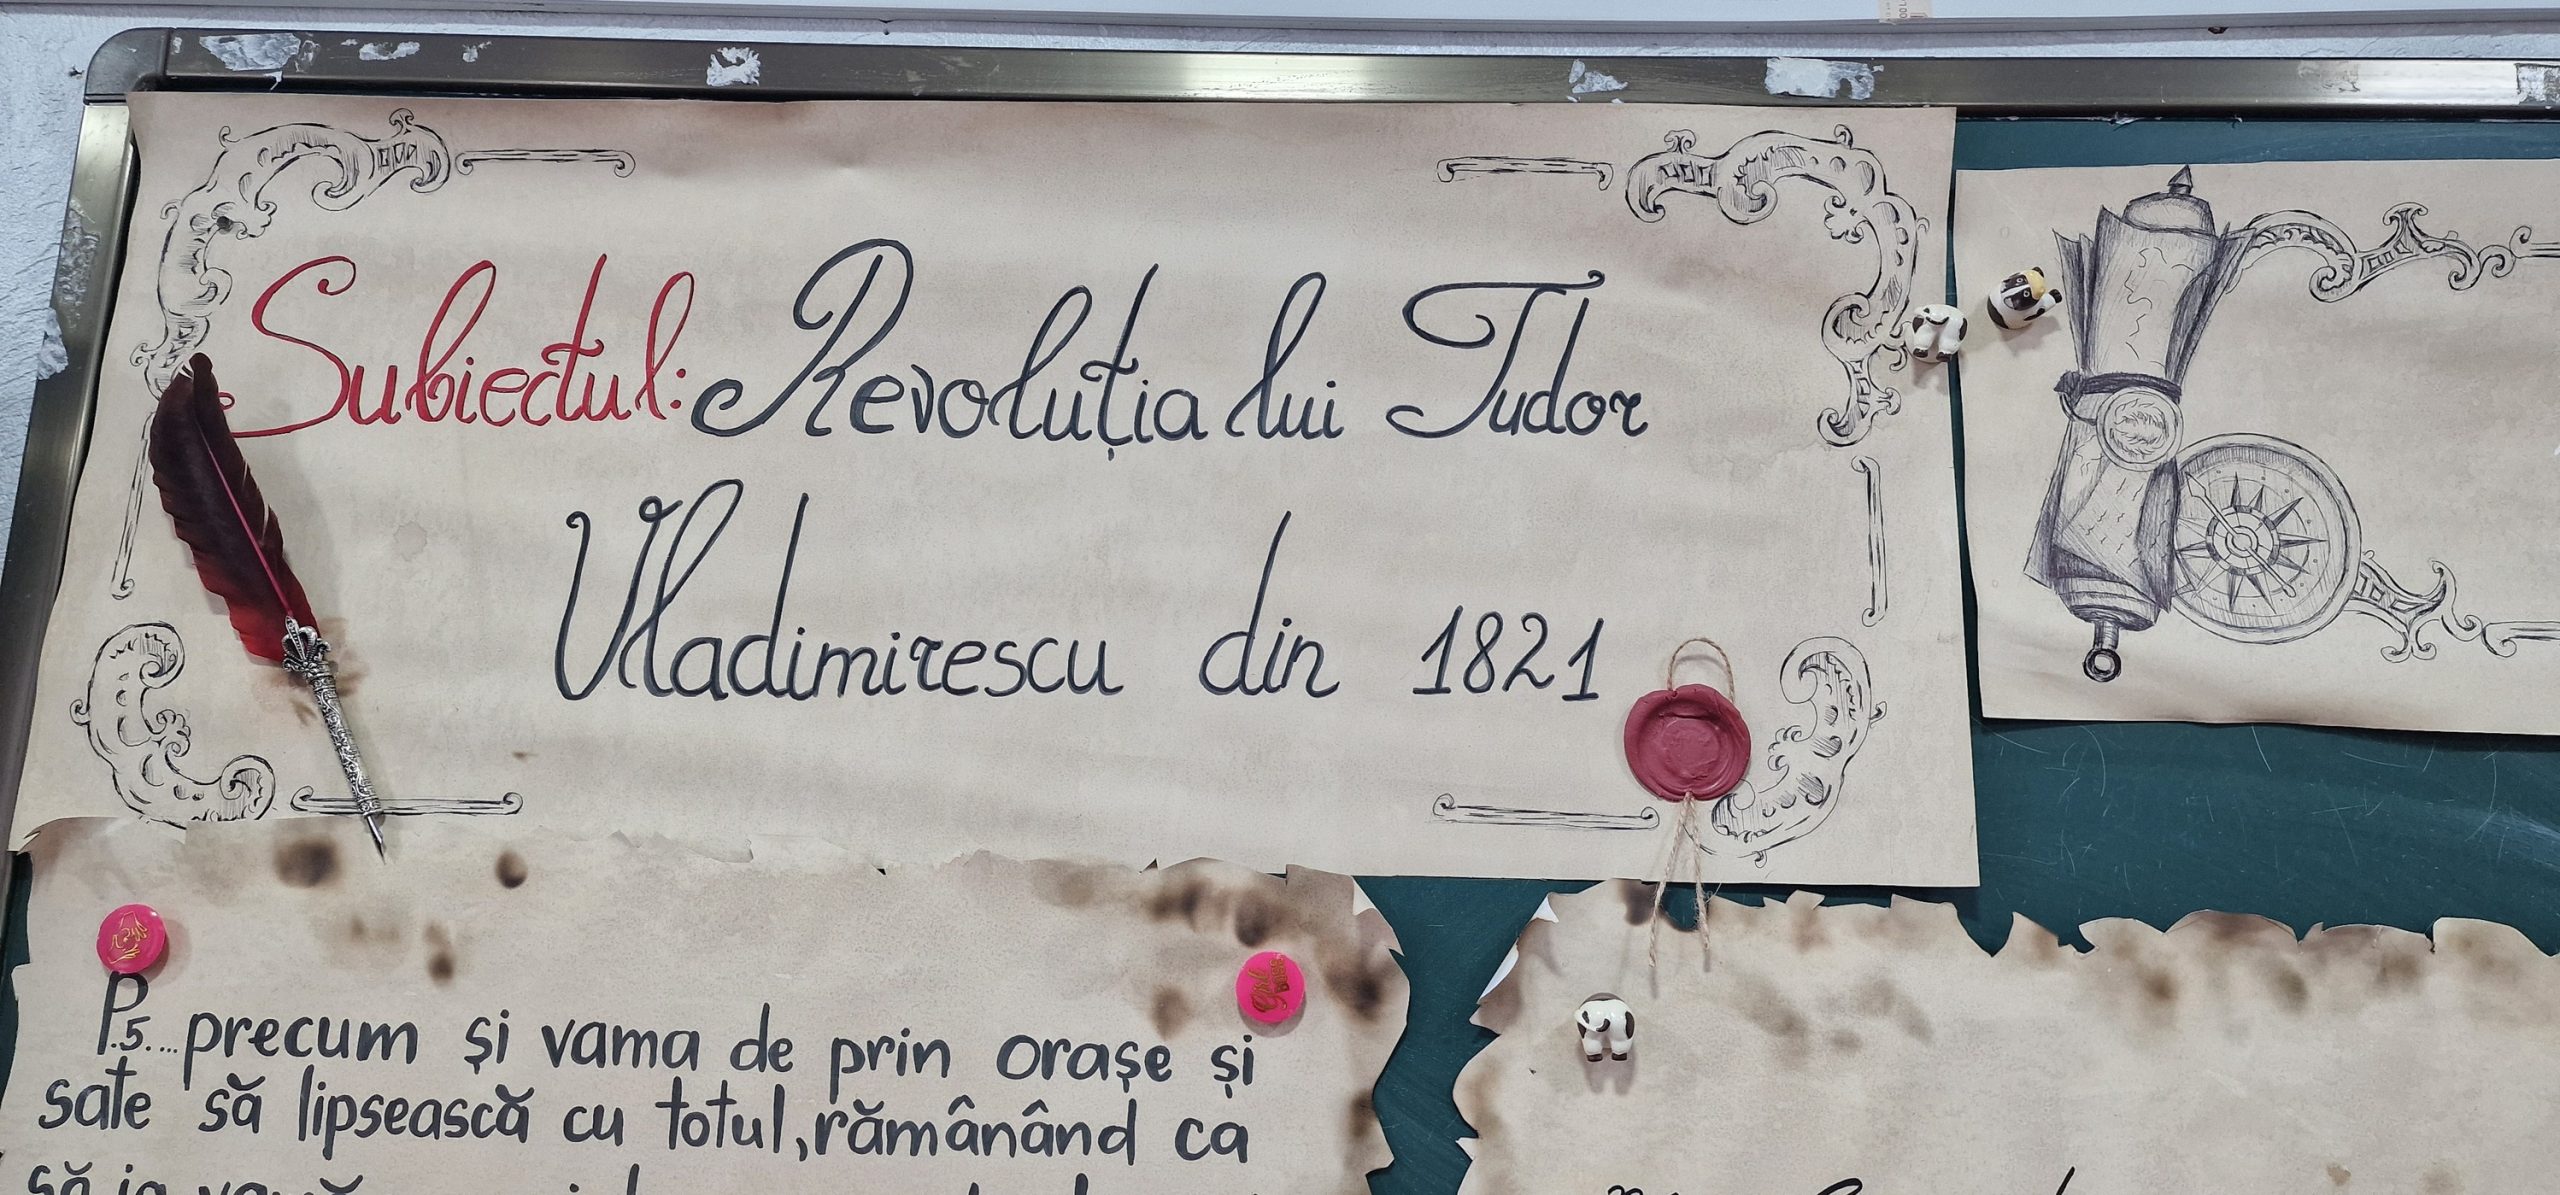 Subiectul: Revoluția lui Tudor
Vladimirescu din 1821
P.5.... precum și vama de prin orașe și
sate să lipsească cu totul, rămânând ca
să ia